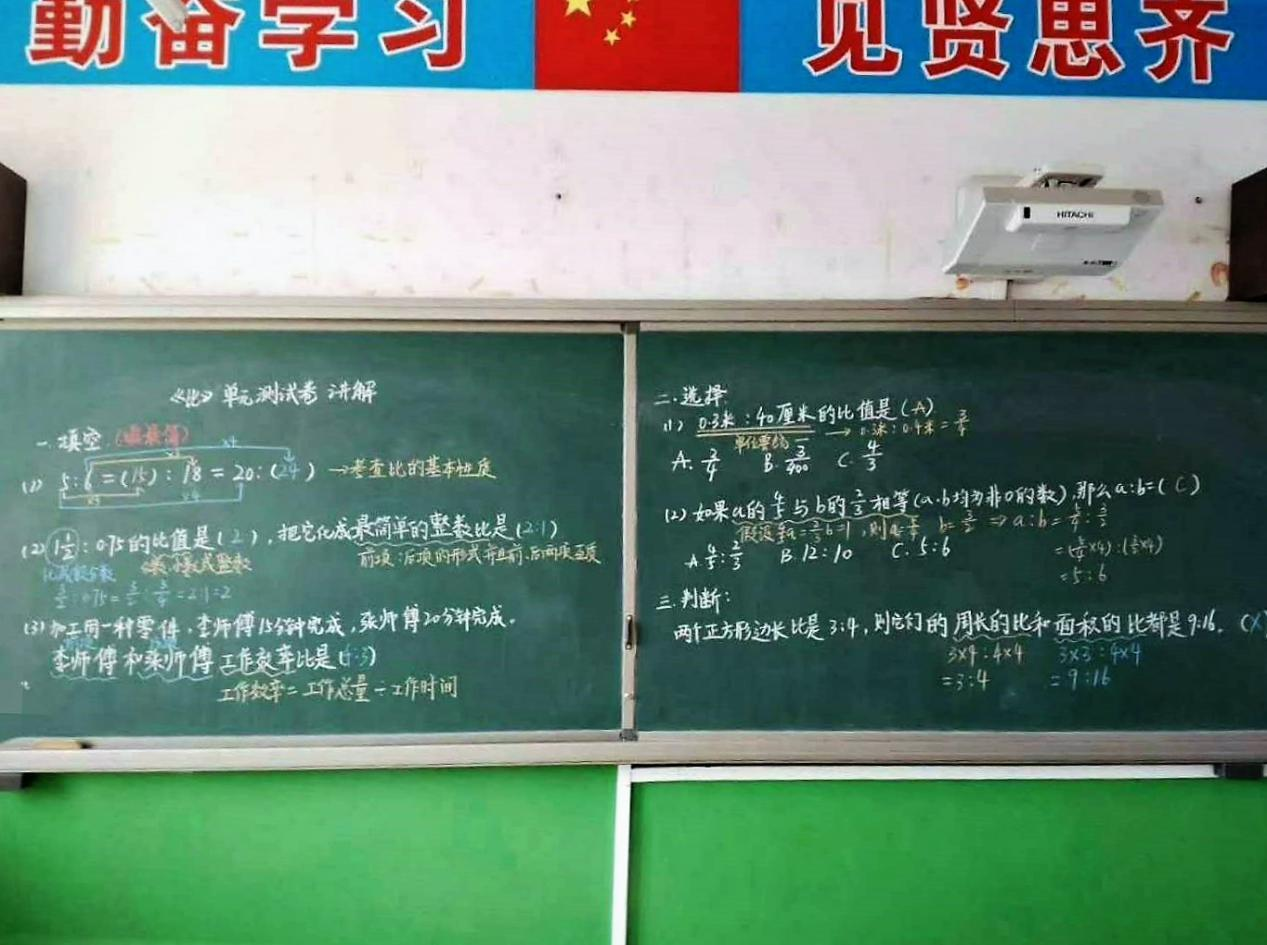 勤奋学习
见贤思齐
HITACHI
《比》单元测试卷 讲解
一.填空.(做最简)
×4
(1) 5:6=(15):18=20:(24) →考查比的基本性质
×3 ×4
(2) 1½:0.75的比值是(2),把它化成最简单的整数比是(2:1)
化成假分数 小数、分数或整数 前项:后项的形式并且前、后两项互质
3/2:0.75=3/2:3/4=2:1=2
(3)加工同一种零件,李师傅15分钟完成,张师傅20分钟完成。
李师傅和张师傅工作效率比是(4:3)
工作效率=工作总量÷工作时间
二.选择
(1) 0.3米:40厘米的比值是(A)
单位要统一 → 0.3米:0.4米=3/4
A. 3/4 B. 3/400 C. 4/3
(2)如果a的4/5与b的2/3相等(a.b均为非0的数),那么a:b=(C)
假设4/5a=2/3b=1,则a=5/4 b=3/2 ⇒a:b=5/4:3/2
A. 4/5:2/3 B. 12:10 C. 5:6
=(5/4×4):(3/2×4)
=5:6
三.判断:
两个正方形边长比是3:4,则它们的周长的比和面积的比都是9:16。(×)
3×4:4×4 3×3:4×4
=3:4 =9:16